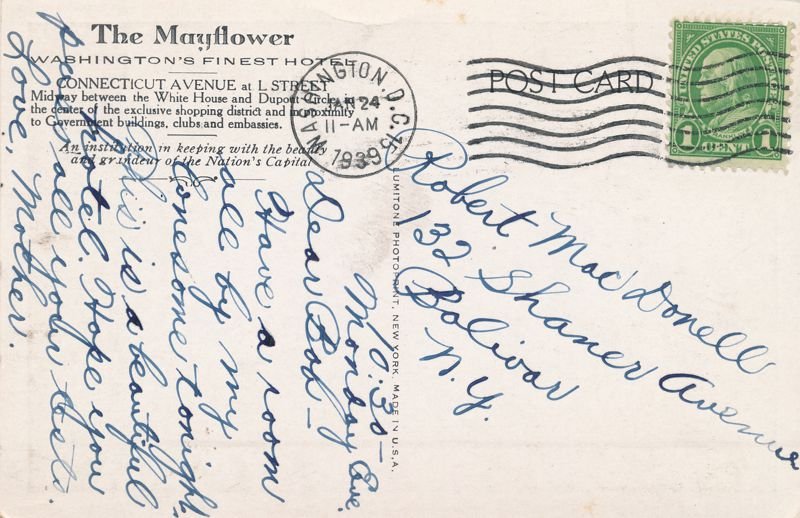 The Mayflower
WASHINGTON'S FINEST HOTEL
CONNECTICUT AVENUE at L STREET
Midway between the White House and Dupont Circle, in
the center of the exclusive shopping district and in proximity
to Government buildings, clubs and embassies.
An institution in keeping with the beauty
and grandeur of the Nation's Capital
WASHINGTON, D.C. 15
JAN 24
11-AM
1939
POST CARD
UNITED STATES POSTAGE
FRANKLIN
1 CENT 1
LUMITONE PHOTOPRINT, NEW YORK. MADE IN U.S.A.
Monday Eve.
Dear Bob —
Have a room
all by my
lonesome tonight.
This is a beautiful
hotel. Hope you
pass all your tests.
Love, Mother.
Robert MacDonell
132 Shaner Avenue
Bolivar
N.Y.